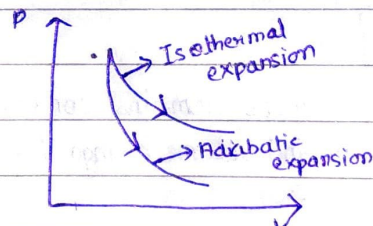 P
Isothermal
expansion
Adiabatic
expansion